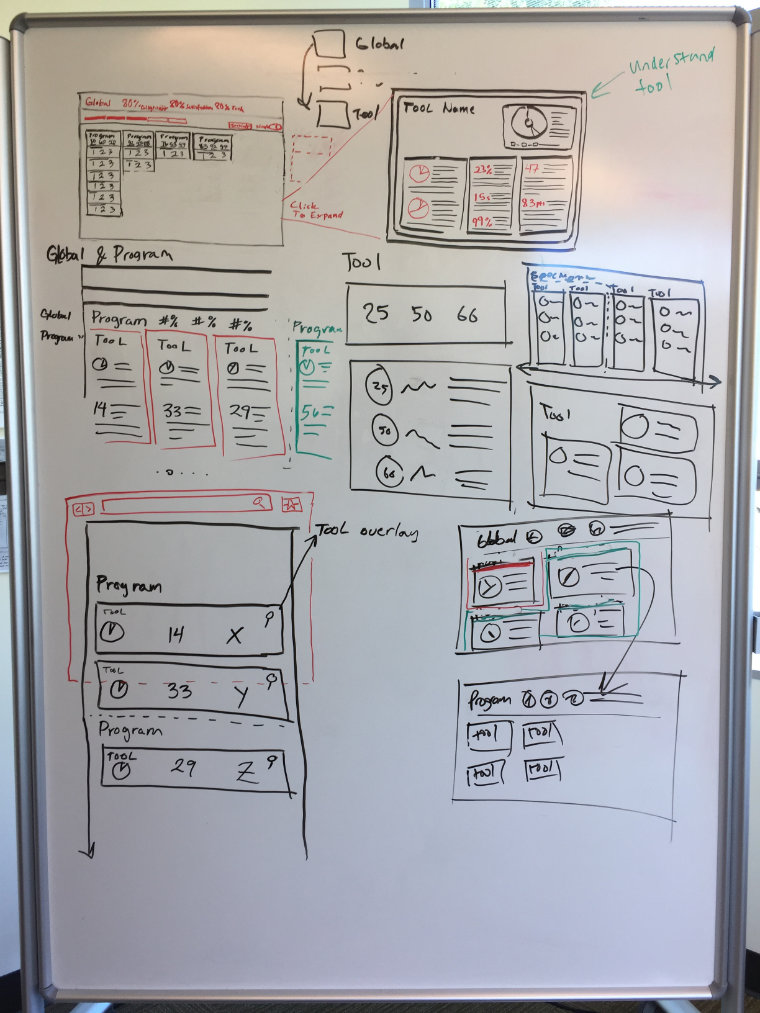 Global
Tool
Understand
tool
Global 80% 80% 80%
Program Program Program Program
1 2 3 1 2 3 1 2 3 1 2 3
1 2 3 1 2 3
1 2 3
1 2 3
1 2 3
1 2 3
Click
To Expand
TOOL Name
23% 47
15s 83m
99%
Global & Program
Global
Program
Program #% #% #%
TOOL TOOL TOOL
14 33 29
Program
TOOL
56
Tool
25 50 66
25
50
66
Tool Tool Tool Tool
Tool
TOOL overlay
Program
TOOL
14 X
TOOL
33 Y
Program
TOOL
29 Z
Global
Program
tool tool
tool tool